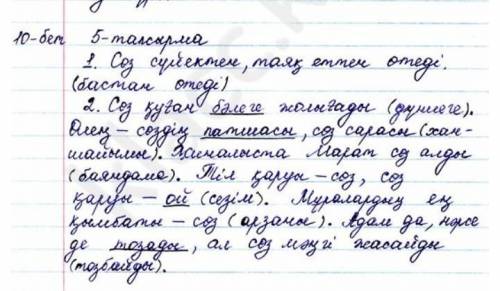 10-бет 5-тапсырма
1. Сөз сүйектен, таяқ еттен өтеді.
(бастан өтеді)
2. Сөз қуған бәлеге жолығады (дүниеге).
Өлең – сөздің патшасы, сөз сарасы (хан-
шайымы). Жиналыста Марат сөз алды
(баяндама). Тіл қаруы – сөз, сөз
қаруы – ой (сезім). Мұралардың ең
қымбаты – сөз (арзаны). Адам да, нәрсе
де тозады, ал сөз мәңгі жасайды
(тозбайды).